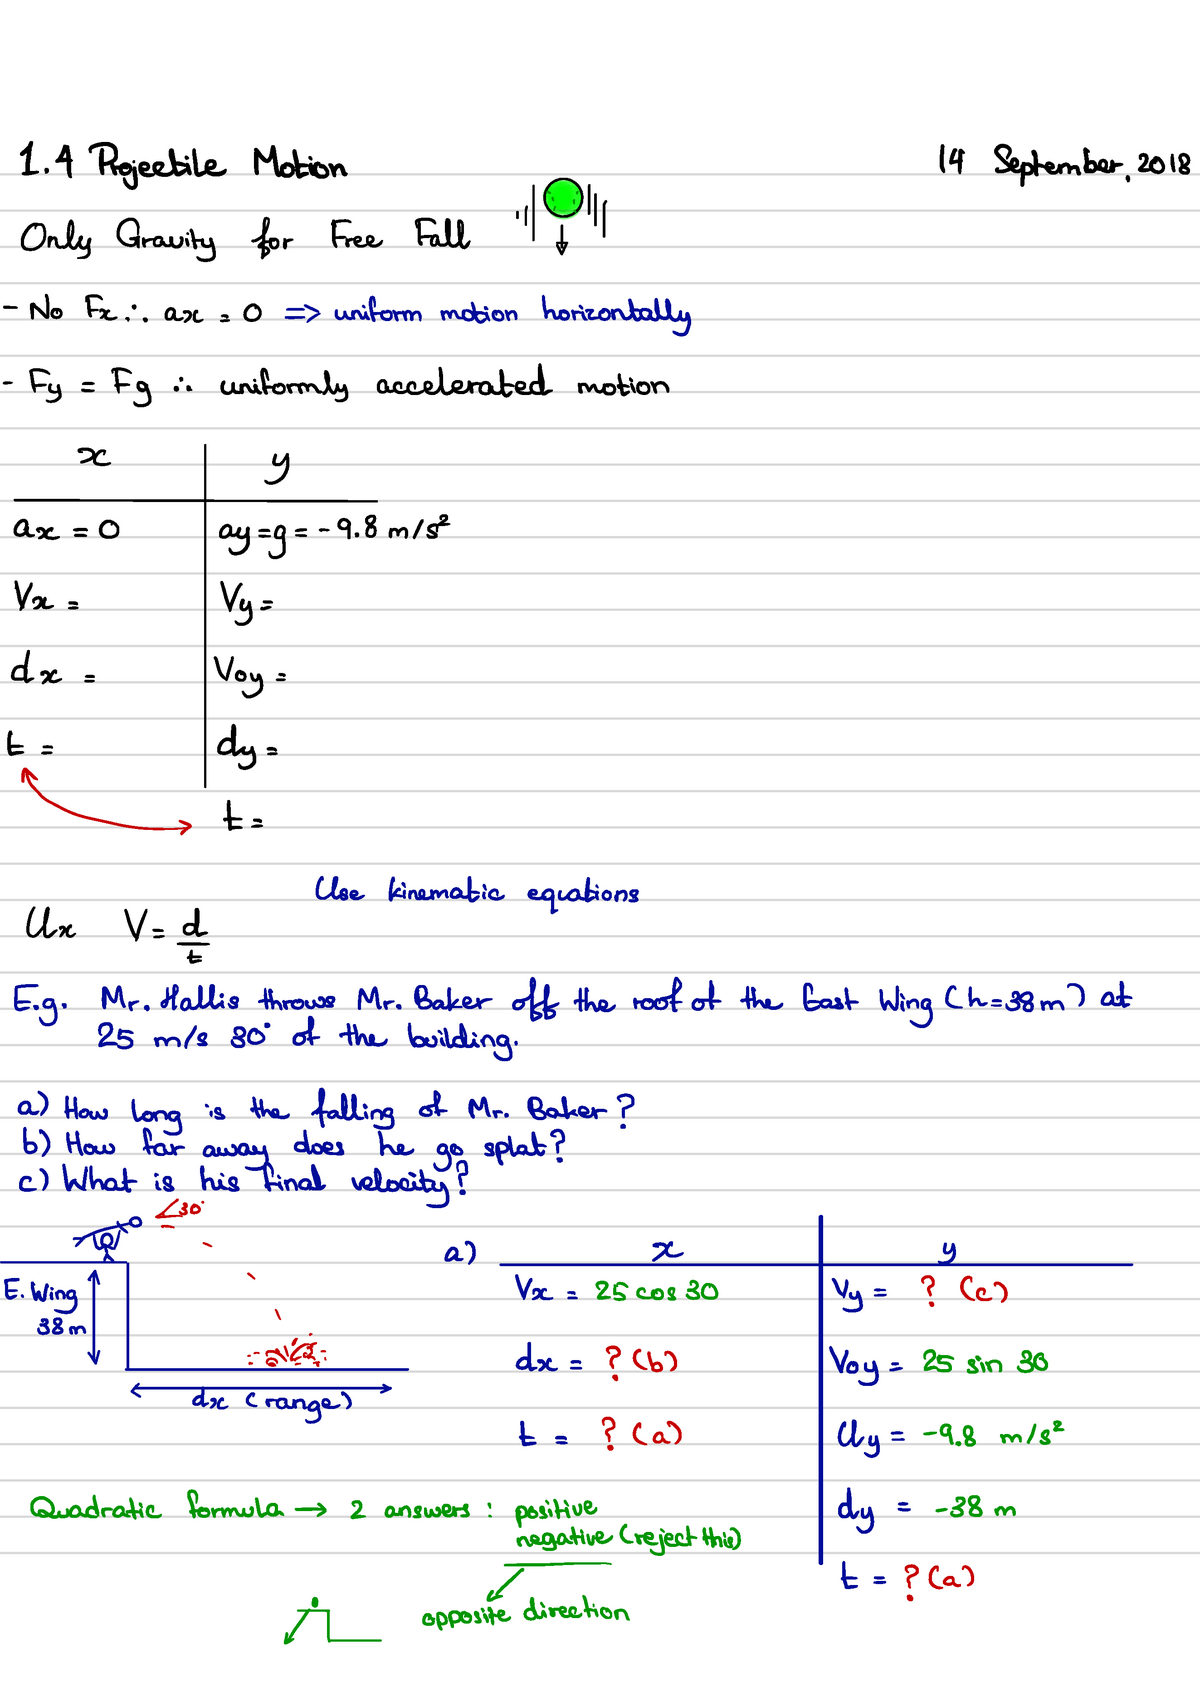 1.4 Projectile Motion
14 September, 2018
Only Gravity for Free Fall
- No Fx ∴ ax = 0 => uniform motion horizontally
- Fy = Fg ∴ uniformly accelerated motion
x y
ax = 0 ay = g = -9.8 m/s²
Vx = Vy =
dx = Voy =
t = dy =
t =
Use kinematic equations
Ux V = d/t
E.g. Mr. Hallis throws Mr. Baker off the roof of the East Wing (h=38m) at
25 m/s 30° of the building.
a) How long is the falling of Mr. Baker?
b) How far away does he go splat?
c) What is his final velocity?
∠30°
E. Wing
38 m
dx (range)
a) x y
Vx = 25 cos 30 Vy = ? (c)
dx = ? (b) Voy = 25 sin 30
t = ? (a) Uy = -9.8 m/s²
dy = -38 m
t = ? (a)
Quadratic formula → 2 answers : positive
negative (reject this)
opposite direction